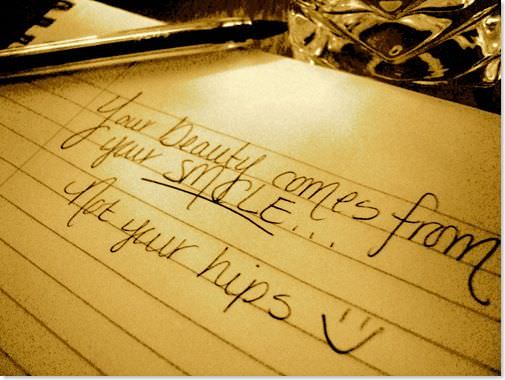 Your beauty comes from
your SMILE...
Not your hips :)